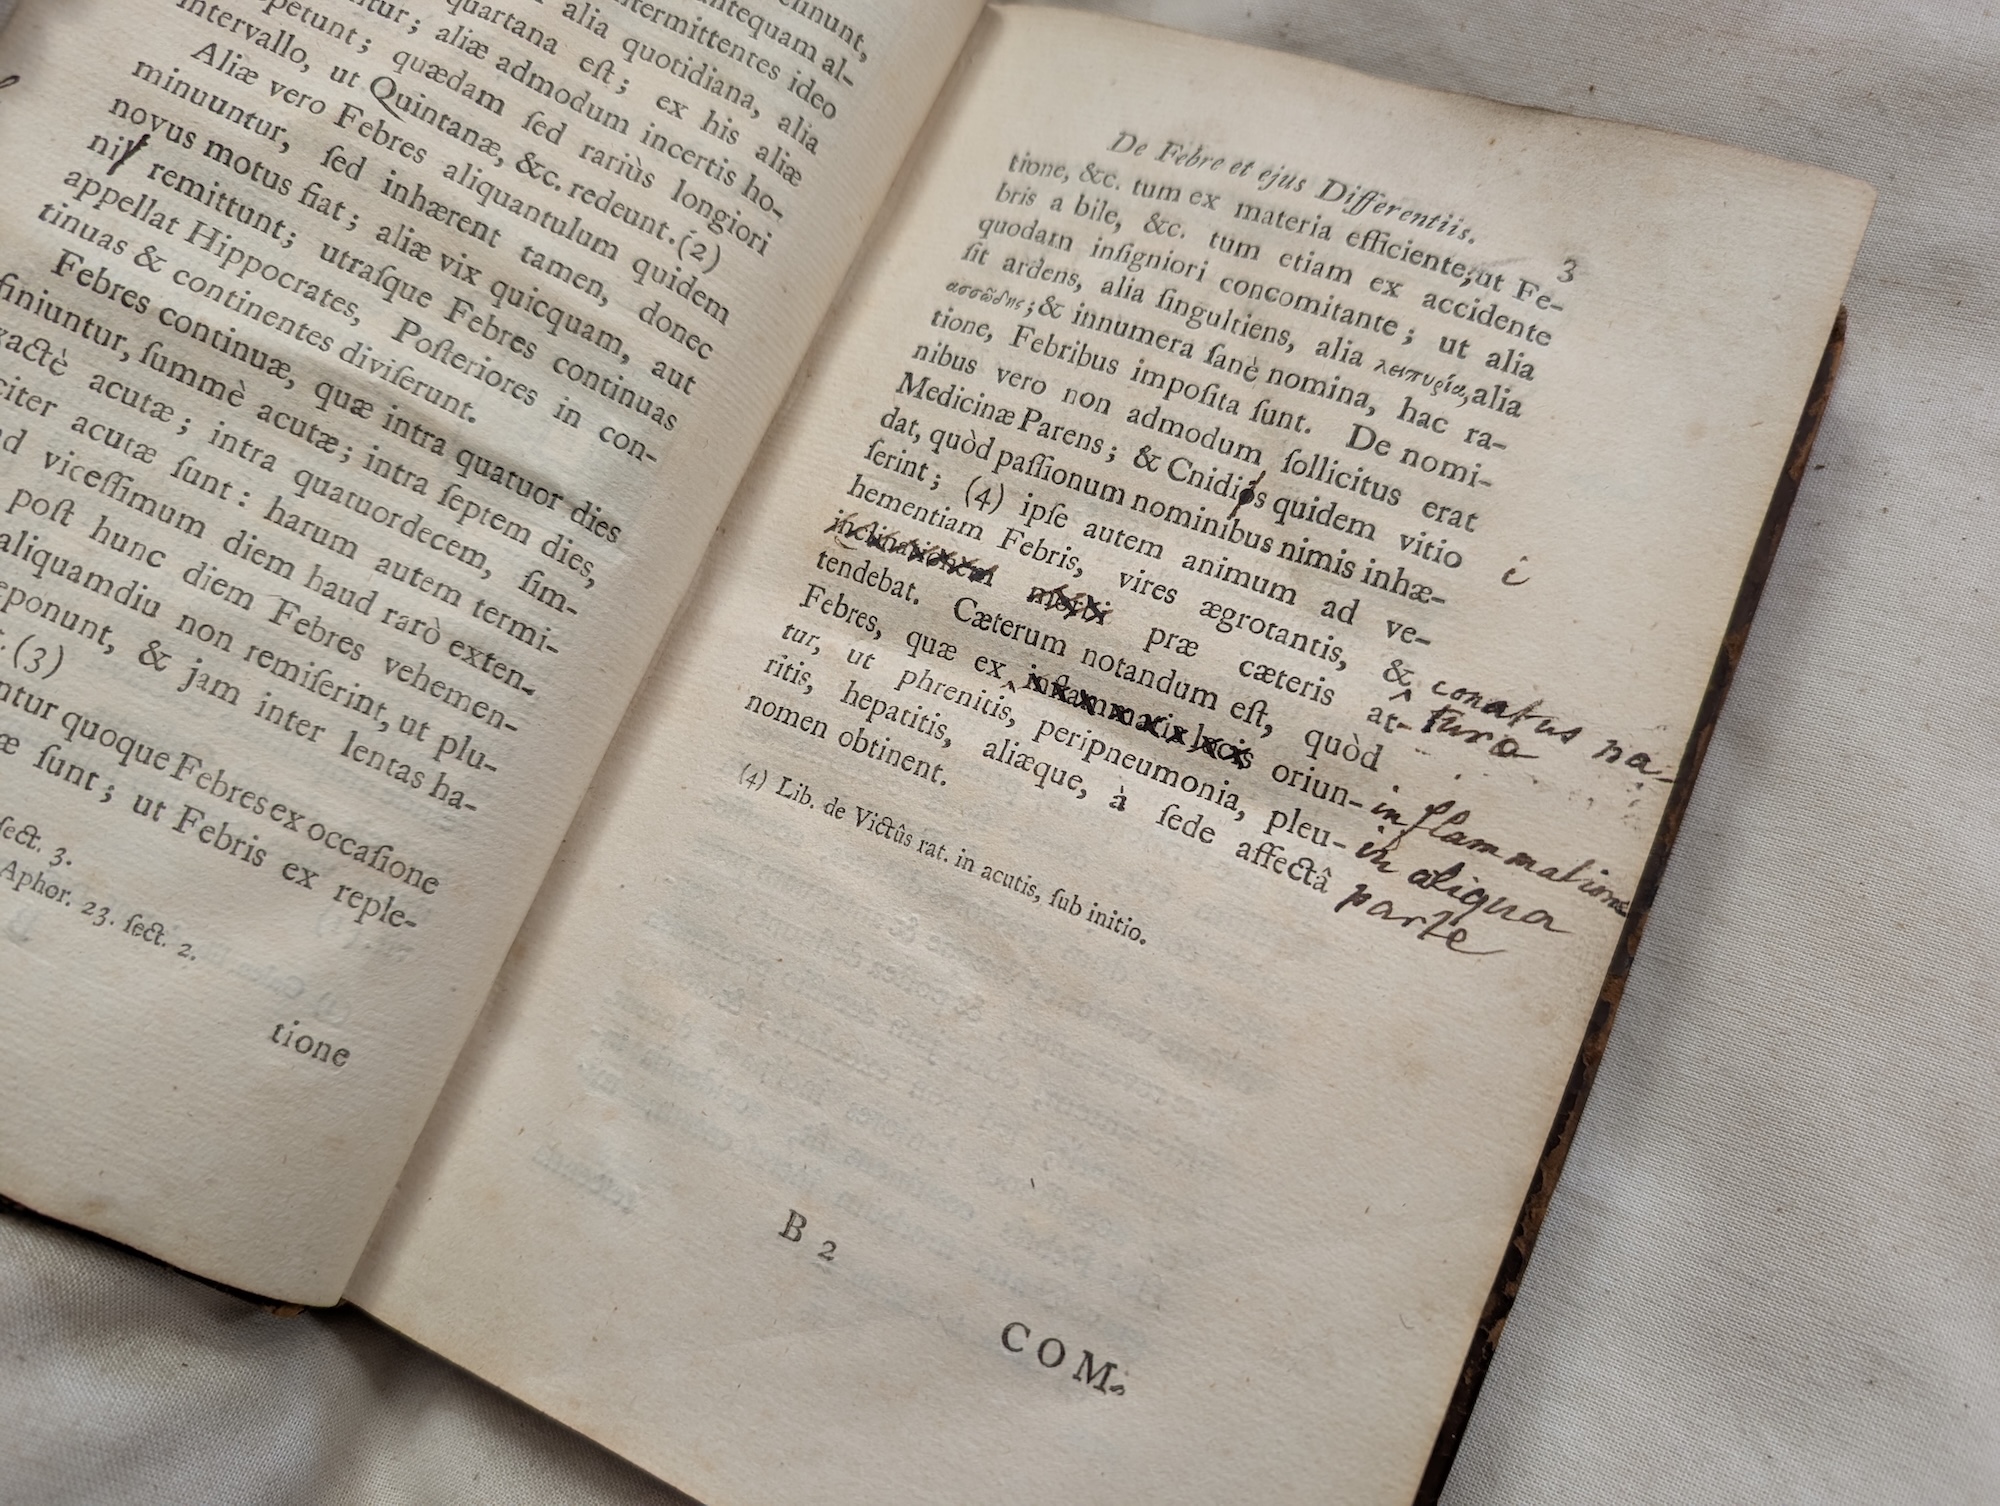 ennunt,
antequam al-
ntermittentes ideo
alia quotidiana, alia
quartana eſt; ex his aliæ
petunt; aliæ admodum incertis ho-
intervallo, quædam ſed rariùs longiori
ut Quintanæ, &c. redeunt.(2)
Aliæ vero Febres aliquantulum quidem
minuuntur, ſed inhærent tamen, donec
novus motus fiat; aliæ vix quicquam, aut
remittunt; utraſque Febres continuas
appellat Hippocrates, Poſteriores in con-
tinuas & continentes diviſerunt.
Febres continuæ, quæ intra quatuor dies
finiuntur, ſummè acutæ; intra ſeptem dies,
acutæ; intra quatuordecem, ſim-
citer acutæ ſunt: harum autem termi-
viceſſimum diem haud rarò exten-
poſt hunc diem Febres vehemen-
aliquamdiu non remiſerint, ut plu-
eponunt, & jam inter lentas ha-
(3)
ntur quoque Febres ex occaſione
æ ſunt; ut Febris ex reple-
ſect. 3.
Aphor. 23. ſect. 2.
tione
De Febre et ejus Differentiis. 3
tione, &c. tum ex materia efficiente, ut Fe-
bris a bile, &c. tum etiam ex accidente
quodam inſigniori concomitante; ut alia
ſit ardens, alia ſingultiens, alia λειπυρία, alia
ασσώδης; & innumera ſanè nomina, hac ra-
tione, Febribus impoſita ſunt. De nomi-
nibus vero non admodum ſollicitus erat
Medicinæ Parens; & Cnidiós quidem vitio i
dat, quòd paſſionum nominibus nimis inhæ-
ſerint; (4) ipſe autem animum ad ve-
hementiam Febris, vires ægrotantis, & conatus na-
inclinationem morbi præ cæteris at- turæ
tendebat. Cæterum notandum eſt, quòd
Febres, quæ ex inflammatis locis oriun- inflammatione
tur, ut phrenitis, peripneumonia, pleu- in aliqua
ritis, hepatitis, aliæque, à ſede affectâ parte
nomen obtinent.
(4) Lib. de Victûs rat. in acutis, ſub initio.
B 2
COM-